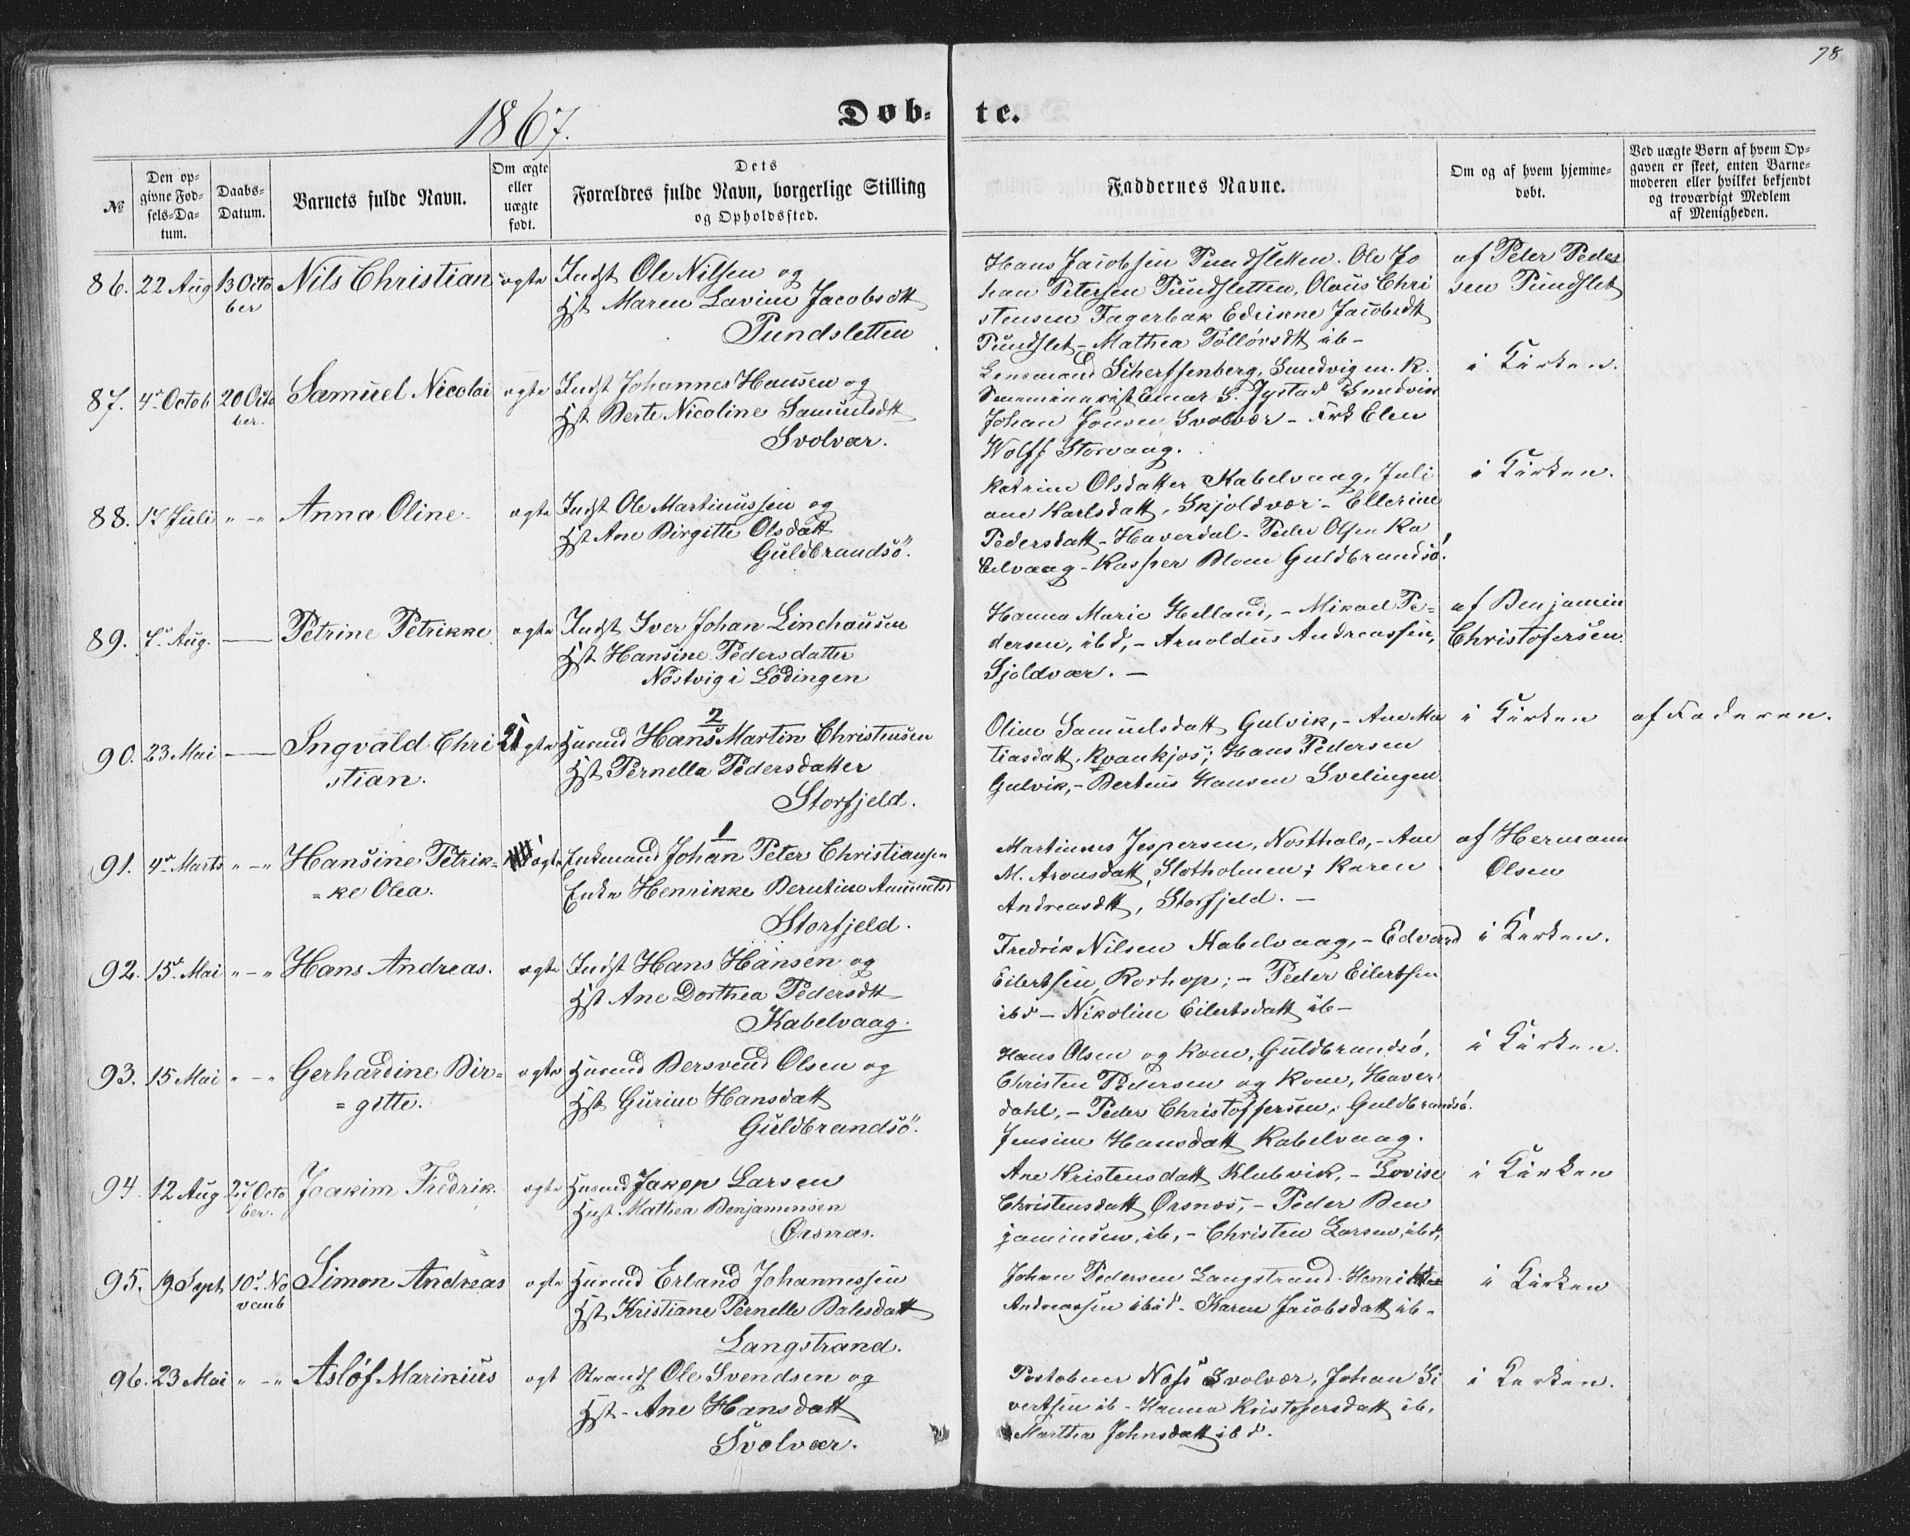 78
1867.
Døb-
te.
№
Den op-
givne Fød-
sels-Da-
tum.
Daabs-
Datum.
Barnets fulde Navn.
Om ægte
eller
uægte
født.
Dets
Forældres fulde Navn, borgerlige Stilling
og Opholdssted.
Faddernes Navne.
Om og af hvem hjemme-
døbt.
Ved uægte Børn af hvem Op-
gaven er skeet, enten Barne-
moderen eller hvilket bekjendt
og troværdigt Medlem
af Menigheden.
86. 22 Aug 13 Octo
ber
Nils Christian
ægte
Indst Ole Nilsen og
Hst Maren Lavine Jacobsdtt
Pundsletten
Hans Jacobsen Pundsletten. Ole Jo
han Petersen Pundsletten, Olaus Chri
stensen Fagerbak Edrikke Jacobsdtt
Pundslet - Mathea Tollevsdtt ib-
af Peter Peder
sen Pundslet
87. 4de Octob 20 Octo
ber.
Samuel Nicolai
ægte
Indst Johannes Hansen og
Hst Berte Nicoline Samuelsdtt
Svolvær.
Lensmand Scherffenberg, Smedvig m. K.
Seminarist Einar S. Jystad Smedvik
Johan Jonsen Svolvær - Frk Elen
Wolff Storvaag.
i Kirken.
88. 17 Juli " - "
Anna Oline
ægte
Indst Ole Martinussen og
Hst Ane Birgitte Olsdatt
Guldbrandsö.
Katrine Olsdatter Kabelvaag, Juli
ane Karlsdatt, Skjoldvær - Ellerine
Pedersdatt - Haverdal - Peder Olsen Ka
belvaag - Kasper Blom Guldbrandsö.
i Kirken.
89. 7de Aug. —
Petrine Petrikke
ægte
Indst Iver Johan Linehausen
Hst Hansine Pedersdatter
Nöstvig i Lödingen
Hanna Marie Helland, - Mikael Pe-
dersen, ibd, - Arnoldus Andreassen,
Sjoldvær. —
af Benjamin
Christofersen.
90. 23 Mai —
Ingvald Chri
stian.
ægte
2
Husmd Hans Martin Christensen
Hst Pernella Pedersdatter
Storfjeld.
Oline Samuelsdatt Gulvik, - Ane Ma
tiasdatt, Kvankjos; Hans Pedersen
Gulvik, - Berteus Hansen Svelingen.
i Kirken
af Faderen.
91. 4de Marts " - "
Hansine Petrik-
-ke Olea.
ægte
1
Enkemand Johan Peter Christiansen
Enke Henrikke Berntine
Storfjeld.
Martinus Jespersen, Nosthals, - Ane
M. Aronsdatt, Slotholmen; Karen
Andreasdtt, Storfjeld. —
af Hermann
Olsen
92. 15de Mai " - "
Hans Andreas.
ægte
Indst Hans Hansen og
Hst Ane Dorthea Pedersdtt
Kabelvaag.
Fredrik Nilsen Kabelvaag, - Edvard
Eilertsen, Rorhop; - Peder Eilertsen
ibd - Nikoline Eilertsdatt ib -
i Kirken.
93. 15 Mai " - "
Gerhardine Bir-
-gitte.
ægte
Husmd Bersvend Olsen og
Hst Gurine Hansdatt
Guldbrandsö.
Hans Olsen og Kone, Guldbrandsö,
Christen Pedersen og Kone, Haver
dahl, - Peder Christoffersen, Guldbrandsö.
Jensine Hansdatt Kabelvaag.
i Kirken.
94. 12 Aug 27 Octo
ber.
Joakim Fredrik.
ægte
Husmd Jakop Larsen
Hust Mathea Benjaminsen
Orsnæs.
Ane Kristensdatt Klubvik, - Lovise
Christensdatt Orsnes, - Peder Ben
jaminsen, ib, - Christen Larsen, ibd,
i Kirken
95. 19 Sept 10d No
vemb
Simon Andreas
ægte
Husmd Erland Johannessen
Hst Kristiane Pernelle Balesdatt
Langstrand.
Johan Pedersen Langstrand - Henrikke
Andreassen ibid - Karen Jacobsdatt ib -
i Kirken
96. 23 Mai " - "
Aslöf Marinius
ægt
Strands Ole Svendsen og
Hst - Ane Hansdatt
Svolvær.
Postobner Næss Svolvær, Johan Si
vertsen ib - Hanna Kristofersdatt ib,
Marthea Johnsdatt ibd.
i Kirken.